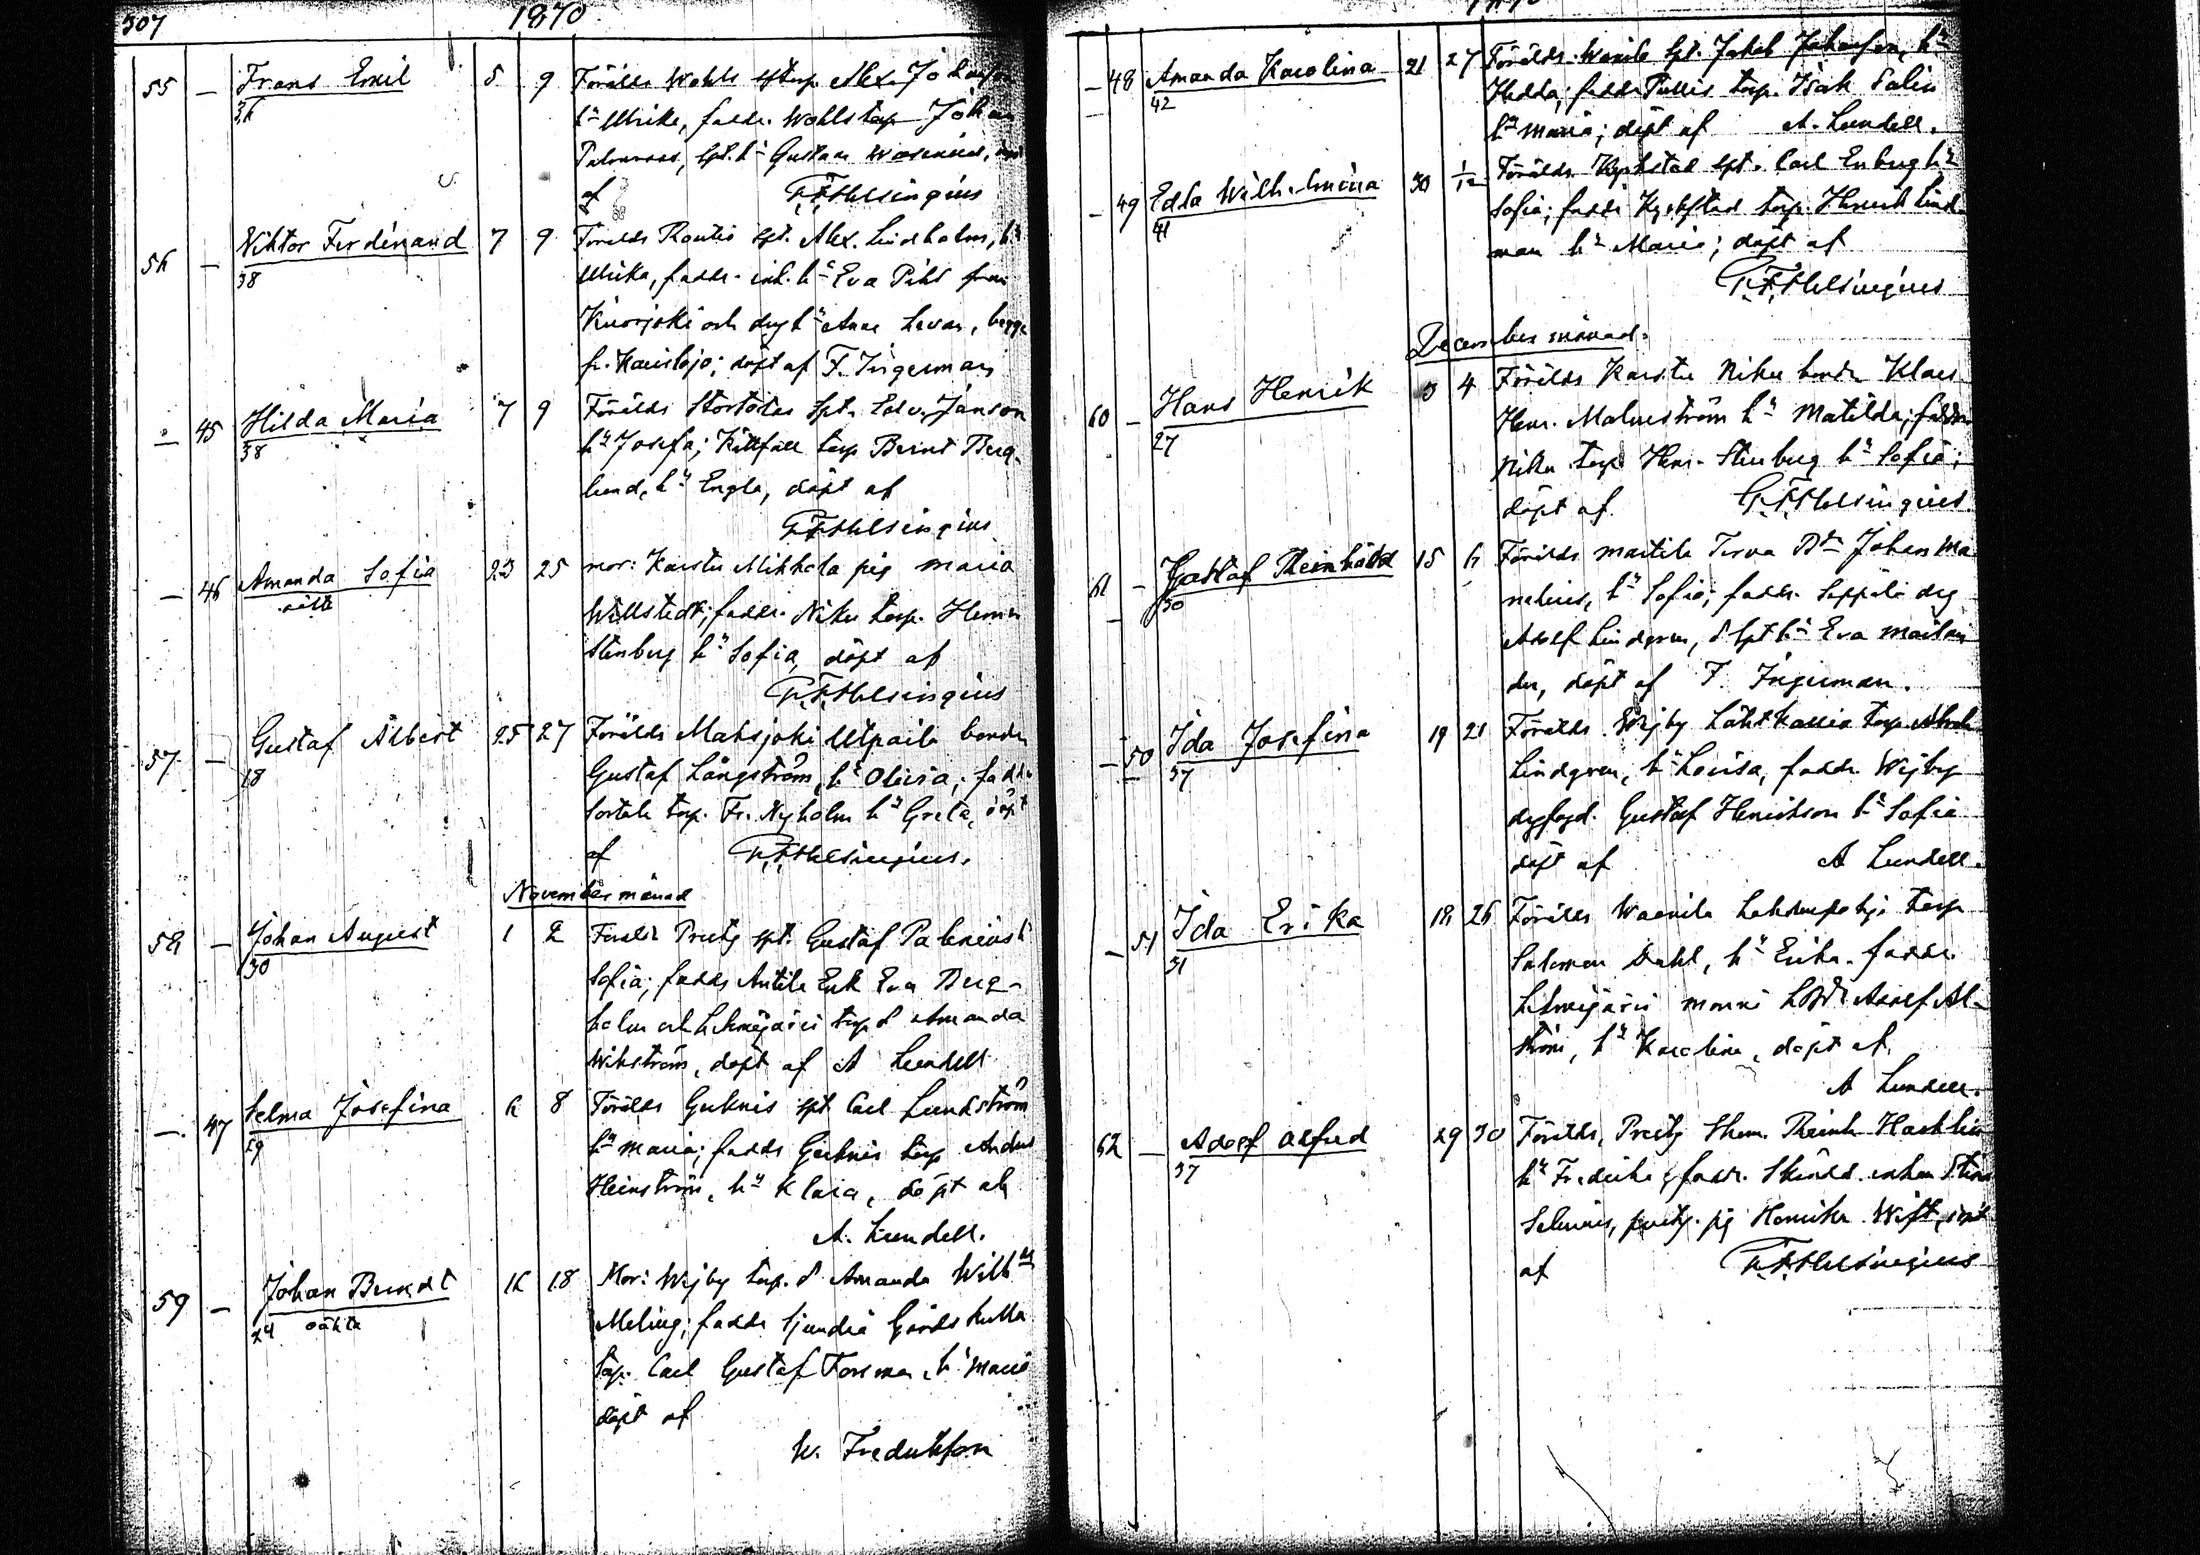 307 1870
55 — Frans Emil 5 9 Föräldr Wohls sptorp. Alex. Johansson
36 hu Ulrika, faddr. Wohls torp Johan
Palmroos, spt. hu Gustava Wasenius,
af G.F.Helsingius
56 — Viktor Ferdinand 7 9 Föräldr Routio spt. Alex. Lindholm, hu
38 Ulrika, faddr. inh. hu Eva Pihl från
Kuorjoki och drg hu Anna Levan, begge
fr. Karislojo; döpt af F. Ingerman
— 45 Hilda Maria 7 9 Föräldr Stortötar spt. Edv. Janson
38 hu Josefa; Källfall torp Bernt Berg-
lund, hu Engla, döpt af
G.F.Helsingius
— 46 Amanda Sofia 23 25 mor: Karstu Mikkola pig Maria
oäkta Willstedt; faddr. Niku torp. Henrik
Stenberg hu Sofia, döpt af
G.F.Helsingius
57 — Gustaf Albert 25 27 Föräldr Maksjoki Uhpaila bonden
18 Gustaf Långström, hu Olivia; faddr.
Sortola torp. Fr. Nyholm hu Greta, döpt
af G.F.Helsingius.
November månad
58 — Johan August 1 2 Föräldr Prestg spt. Gustaf Palenius h
30 Sofia; faddr Antila Enk Eva Berg-
holm och Lehmijärvi torp d Amanda
Wikström, döpt af A Lundell
— 47 Selma Josefina 6 8 Föräldr Gubnis spt Carl Lundström
29 hu Maria; faddr Gubnis torp Anders
Heinström, hu Klara, döpt af
A. Lundell.
59 — Johan Berndt 16 18 Mor: Wejby torp. d Amanda Wilhna
24 oäkta Meling; faddr Sjundeå Gårdskulla
torp. Carl Gustaf Forsman, hu Maria
döpt af
W. Fredrikson
— 48 Amanda Karolina 21 27 Föräldr. Wanila spt. Jakob Johansson, hu
42 Hedda; faddr Pullis torp. Isak Salin
hu Maria; döpt af A. Lundell.
— 49 Edla Wilhelmina 30 1/12 Föräldr Kyrkstad spt. Carl Enberg hu
41 Sofia; faddr Kyrkstad torp. Henrik Lind-
man hu Maria; döpt af
G.F.Helsingius
December månad.
60 — Hans Henrik 3 4 Föräldr Karstu Niku bonden Klaes
27 Henr. Malmström hu Matilda; faddr
Niku torp Henr. Stenberg hu Sofia;
döpt af G.F.Helsingius.
61 — Gustaf Reinhold 15 6 Föräldr Martila Terva Bdn Johan Ma-
30 nelius, hu Sofia; faddr. Seppälä drg
Adolf Lindgren, d spt hu Eva Maitan-
der, döpt af F. Ingerman.
— 50 Ida Josefina 19 21 Föräldr Wejby Lähtkallio torp.
37 Lindgren, hu Lovisa, faddr Wejby
drgfogd. Gustaf Henrikson hu Sofia
döpt af A Lundell.
— 51 Ida Erika 18 26 Föräldr Waanila Lehdenpohja torp
31 Salomon Dahl, hu Erika. faddr.
Lehmijärvi Adolf Al-
ström, hu Karolina, döpt af
A Lundell.
62 — Adolf Alfred 29 30 Föräldr, Prestg Skom. Reinh Hacklin
37 hu Fredrika; faddr. enkan Stina
Selenius, prestg. pig Henrika Wift, döpt
af G.F.Helsingius